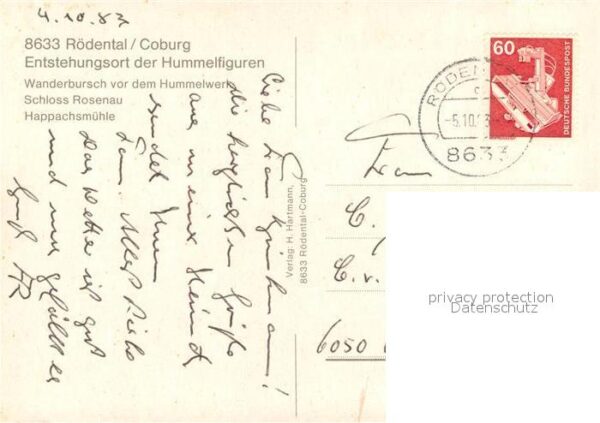 4.10.83
8633 Rödental / Coburg
Entstehungsort der Hummelfiguren
Wanderbursch vor dem Hummelwerk
Schloss Rosenau
Happachsmühle
Liebe Frau
die herzlichsten Grüße
aus meiner Heimat
sendet Ihnen
Fam. Alles Liebe
Das Wetter ist gut
und uns gefällt es
Gruß
Verlag: H. Hartmann,
8633 Rödental-Coburg
60
DEUTSCHE BUNDESPOST
RÖDEN
-5.10.
8633
Frau
C.
C. v.
6050
privacy protection
Datenschutz